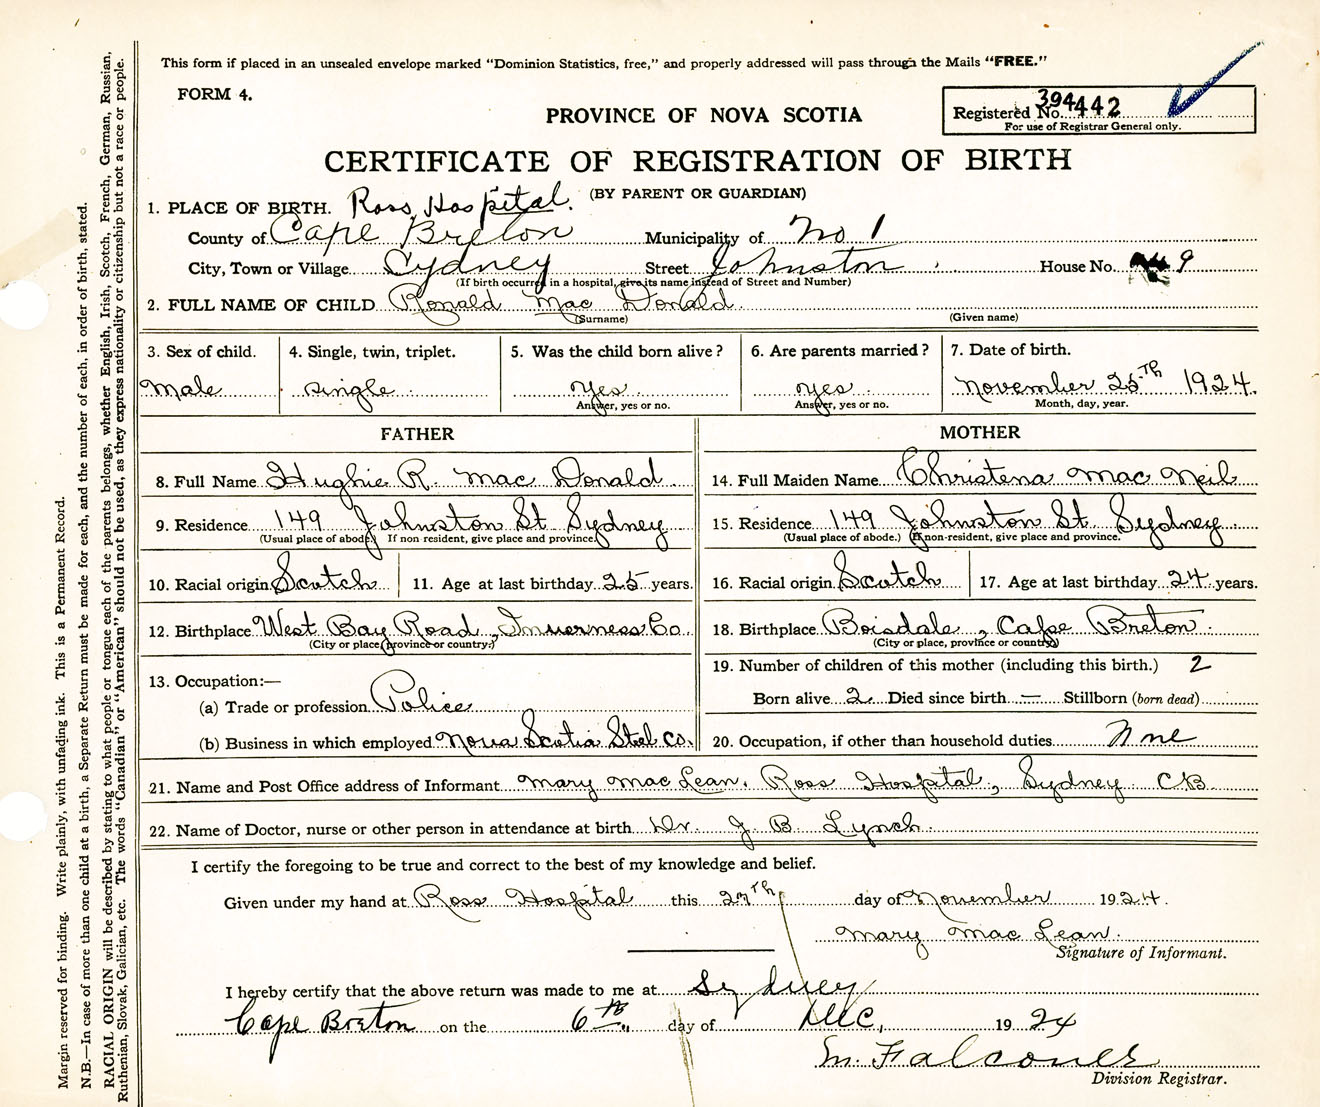 This form if placed in an unsealed envelope marked "Dominion Statistics, free," and properly addressed will pass through the Mails "FREE."
FORM 4.
PROVINCE OF NOVA SCOTIA
Registered No. 394442
For use of Registrar General only.
CERTIFICATE OF REGISTRATION OF BIRTH
(BY PARENT OR GUARDIAN)
1. PLACE OF BIRTH. Ross Hospital.
County of Cape Breton Municipality of No 1
City, Town or Village Sydney Street Johnston House No. 149
(If birth occurred in a hospital, give its name instead of Street and Number)
2. FULL NAME OF CHILD Ronald Mac Donald.
(Surname) (Given name)
3. Sex of child. 4. Single, twin, triplet. 5. Was the child born alive? 6. Are parents married? 7. Date of birth.
Male single yes. yes. November 25th 1924.
Answer, yes or no. Answer, yes or no. Month, day, year.
FATHER MOTHER
8. Full Name Hughie R. Mac Donald 14. Full Maiden Name Christena Mac Neil
9. Residence 149 Johnston St Sydney 15. Residence 149 Johnston St. Sydney
(Usual place of abode.) If non-resident, give place and province. (Usual place of abode.) (If non-resident, give place and province.
10. Racial origin Scotch 11. Age at last birthday 25 years. 16. Racial origin Scotch 17. Age at last birthday 24 years.
12. Birthplace West Bay Road, Inverness Co. 18. Birthplace Boisdale, Cape Breton.
(City or place, province or country.) (City or place, province or country)
13. Occupation:— 19. Number of children of this mother (including this birth.) 2
(a) Trade or profession Police Born alive 2 Died since birth — Stillborn (born dead)
(b) Business in which employed Nova Scotia Steel Co. 20. Occupation, if other than household duties None
21. Name and Post Office address of Informant Mary Mac Lean. Ross Hospital, Sydney C.B.
22. Name of Doctor, nurse or other person in attendance at birth Dr. J B Lynch.
I certify the foregoing to be true and correct to the best of my knowledge and belief.
Given under my hand at Ross Hospital this 27th day of November 1924.
Mary Mac Lean.
Signature of Informant.
I hereby certify that the above return was made to me at Sydney
Cape Breton on the 6th day of Dec, 1924
M. Falconer
Division Registrar.
Margin reserved for binding. Write plainly, with unfading ink. This is a Permanent Record.
N.B.—In case of more than one child at a birth, a Separate Return must be made for each, and the number of each, in order of birth, stated.
RACIAL ORIGIN will be described by stating to what people or tongue each of the parents belongs, whether English, Irish, Scotch, French, German, Russian,
Ruthenian, Slovak, Galician, etc. The words "Canadian" or "American" should not be used, as they express nationality or citizenship but not a race or people.